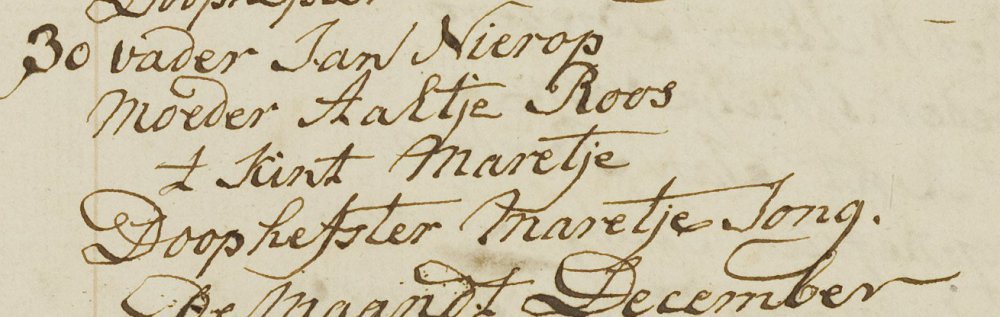 Doophefster
30 vader Jan Nierop
Moeder Aaltje Roos
t kint Maretje
Doophefster Maretje Jong.
De Maandt December